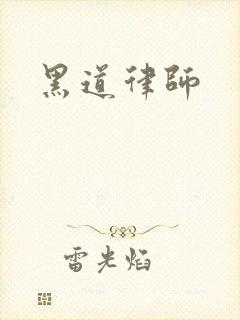 黑道律師
雷光焰